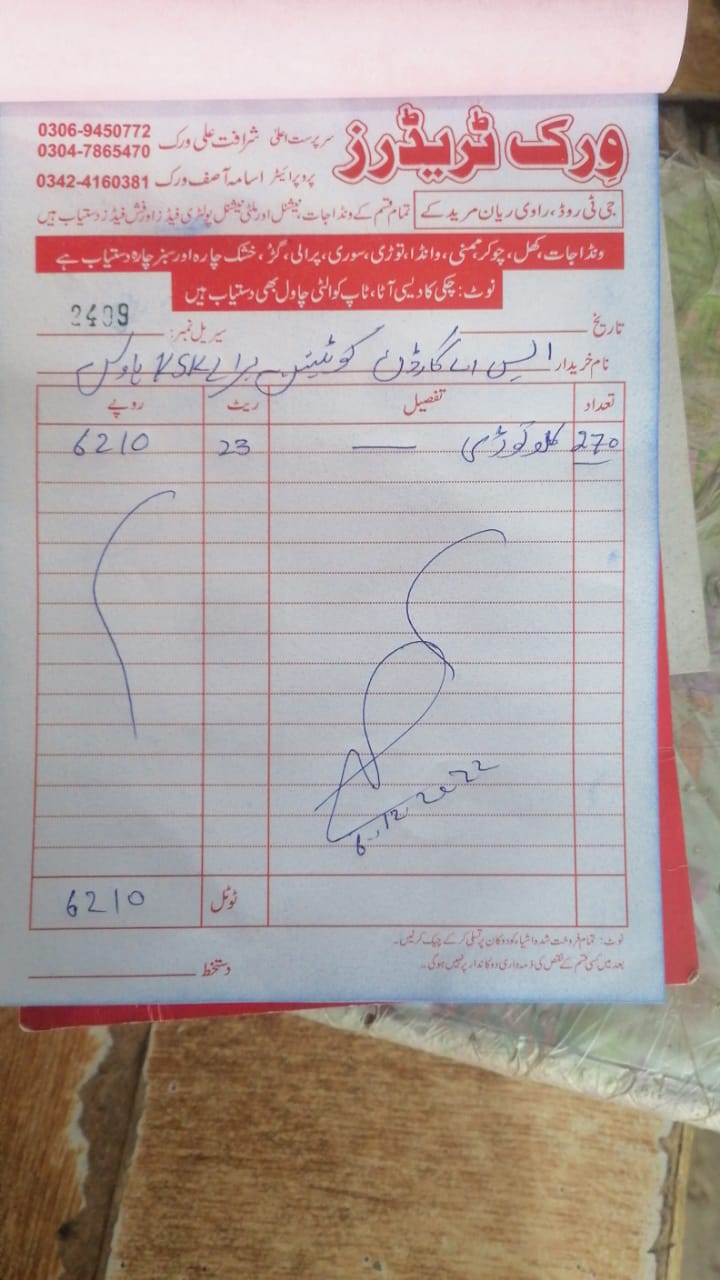 ورک ٹریڈرز
سرپرست اعلیٰ شرافت علی ورک 0306-9450772
0304-7865470
پروپرائیٹر اسامہ آصف ورک 0342-4160381
جی ٹی روڈ، راوی ریان مریدکے
تمام قسم کے ونڈا جات، نیشنل اور ملٹی نیشنل پولٹری فیڈز اور فش فیڈز دستیاب ہیں
ونڈا جات، کھل، چوکر، وانڈا، توڑی، سوری، پرالی، گڑ، خشک چارہ اور سبز چارہ دستیاب ہے
نوٹ: چکی کا دیسی آٹا، ٹاپ کوالٹی چاول بھی دستیاب ہیں
تاریخ سیریل نمبر: 2409
نام خریدار ایس اے گارڈن برائے KSK ہاوس
تعداد تفصیل ریٹ روپے
270 کلو توڑی 23 6210
6.12.2022
ٹوٹل 6210
نوٹ: تمام فروخت شدہ اشیاء کو دوکان پر تسلی کر کے چیک کرلیں۔
بعد میں کسی قسم کے نقص کی ذمہ داری دوکاندار پر نہیں ہوگی۔
دستخط